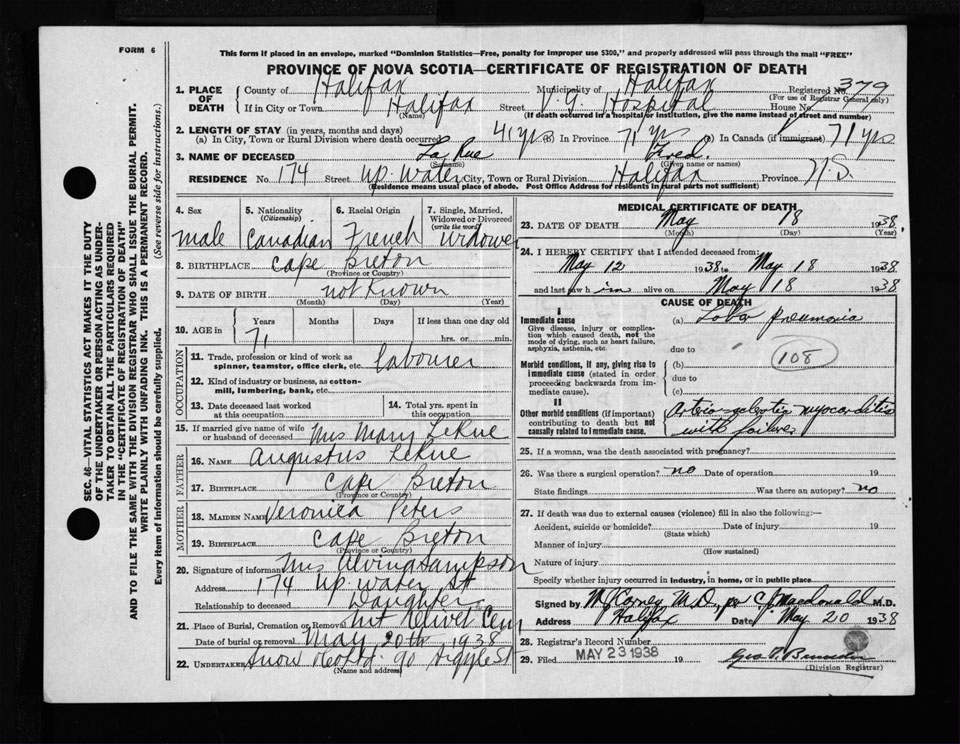 FORM 6
This form if placed in an envelope, marked "Dominion Statistics—Free, penalty for improper use $300," and properly addressed will pass through the mail "FREE"
PROVINCE OF NOVA SCOTIA—CERTIFICATE OF REGISTRATION OF DEATH
1. PLACE OF DEATH County of Halifax Municipality of Halifax Registered No. 379
(For use of Registrar General only)
If in City or Town Halifax Street V.G. Hospital House No.
(Name) (If death occurred in a hospital or institution, give the name instead of street and number)
2. LENGTH OF STAY (in years, months and days)
(a) In City, Town or Rural Division where death occurred 41 yrs (b) In Province 71 yrs (c) In Canada (if immigrant) 71 yrs
3. NAME OF DECEASED La Rue Fred.
(Surname) (Given name or names)
RESIDENCE No. 174 Street Up. Water City, Town or Rural Division Halifax Province N.S.
(Residence means usual place of abode. Post Office Address for residents in rural parts not sufficient)
4. Sex male
5. Nationality (Citizenship) Canadian
6. Racial Origin French
7. Single, Married, Widowed or Divorced (write the word) Widower
8. BIRTHPLACE Cape Breton
(Province or Country)
9. DATE OF BIRTH not Known
(Month) (Day) (Year)
10. AGE in Years Months Days If less than one day old
71 hrs. or min.
OCCUPATION
11. Trade, profession or kind of work as spinner, teamster, office clerk, etc. labourer
12. Kind of industry or business, as cotton-mill, lumbering, bank, etc.
13. Date deceased last worked at this occupation
14. Total yrs. spent in this occupation
15. If married give name of wife or husband of deceased Mrs Mary LeRue
FATHER
16. NAME Augustus LeRue
17. BIRTHPLACE Cape Breton
(Province or Country)
MOTHER
18. MAIDEN NAME Veronica Peters
19. BIRTHPLACE Cape Breton
(Province or Country)
20. Signature of informant Mrs Alvina Sampson
Address 174 Up. Water St
Relationship to deceased Daughter
21. Place of Burial, Cremation or Removal Mt Olivet Cem
Date of burial or removal May 20th 1938
22. UNDERTAKER Snow & Co Ltd. 90 Argyle St
(Name and address)
MEDICAL CERTIFICATE OF DEATH
23. DATE OF DEATH May 18 1938
(Month) (Day) (Year)
24. I HEREBY CERTIFY that I attended deceased from:
May 12 1938 to May 18 1938
and last saw him alive on May 18 1938
CAUSE OF DEATH
I
Immediate cause
Give disease, injury or complication which caused death, not the mode of dying, such as heart failure, asphyxia, asthenia, etc.
(a) Lobar pneumonia
due to
108
Morbid conditions, if any, giving rise to immediate cause (stated in order proceeding backwards from immediate cause).
(b)
due to
(c)
II
Other morbid conditions (if important) contributing to death but not causally related to immediate cause.
Arterio-sclerotic myocarditis
with failure
25. If a woman, was the death associated with pregnancy?
26. Was there a surgical operation? no Date of operation 19
State findings Was there an autopsy? no
27. If death was due to external causes (violence) fill in also the following:—
Accident, suicide or homicide? Date of injury 19
(State which)
Manner of injury
(How sustained)
Nature of injury
Specify whether injury occurred in industry, in home, or in public place
Signed by M.D. per C.J. Macdonald M.D.
Address Halifax Date May 20 1938
28. Registrar's Record Number
29. Filed MAY 23 1938 19
(Division Registrar)
SEC. 46—VITAL STATISTICS ACT MAKES IT THE DUTY
OF THE UNDERTAKER OR PERSON ACTING AS UNDER-
TAKER TO OBTAIN ALL THE PARTICULARS REQUIRED
IN THE "CERTIFICATE OF REGISTRATION OF DEATH"
AND TO FILE THE SAME WITH THE DIVISION REGISTRAR WHO SHALL ISSUE THE BURIAL PERMIT.
WRITE PLAINLY WITH UNFADING INK. THIS IS A PERMANENT RECORD.
Every item of information should be carefully supplied. (See reverse side for instructions.)